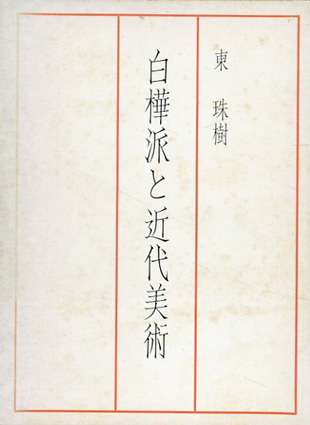 東 珠樹
白樺派と近代美術